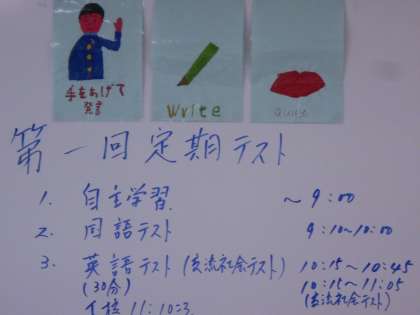 手をあげて
発言
Write
Quiet
第一回定期テスト
1. 自主学習 ～9:00
2. 国語テスト 9:10~10:00
3. 英語テスト(交流社会テスト) 10:15~10:45
(30分) 10:15~11:05
(交流社会テスト)
下校 11:10